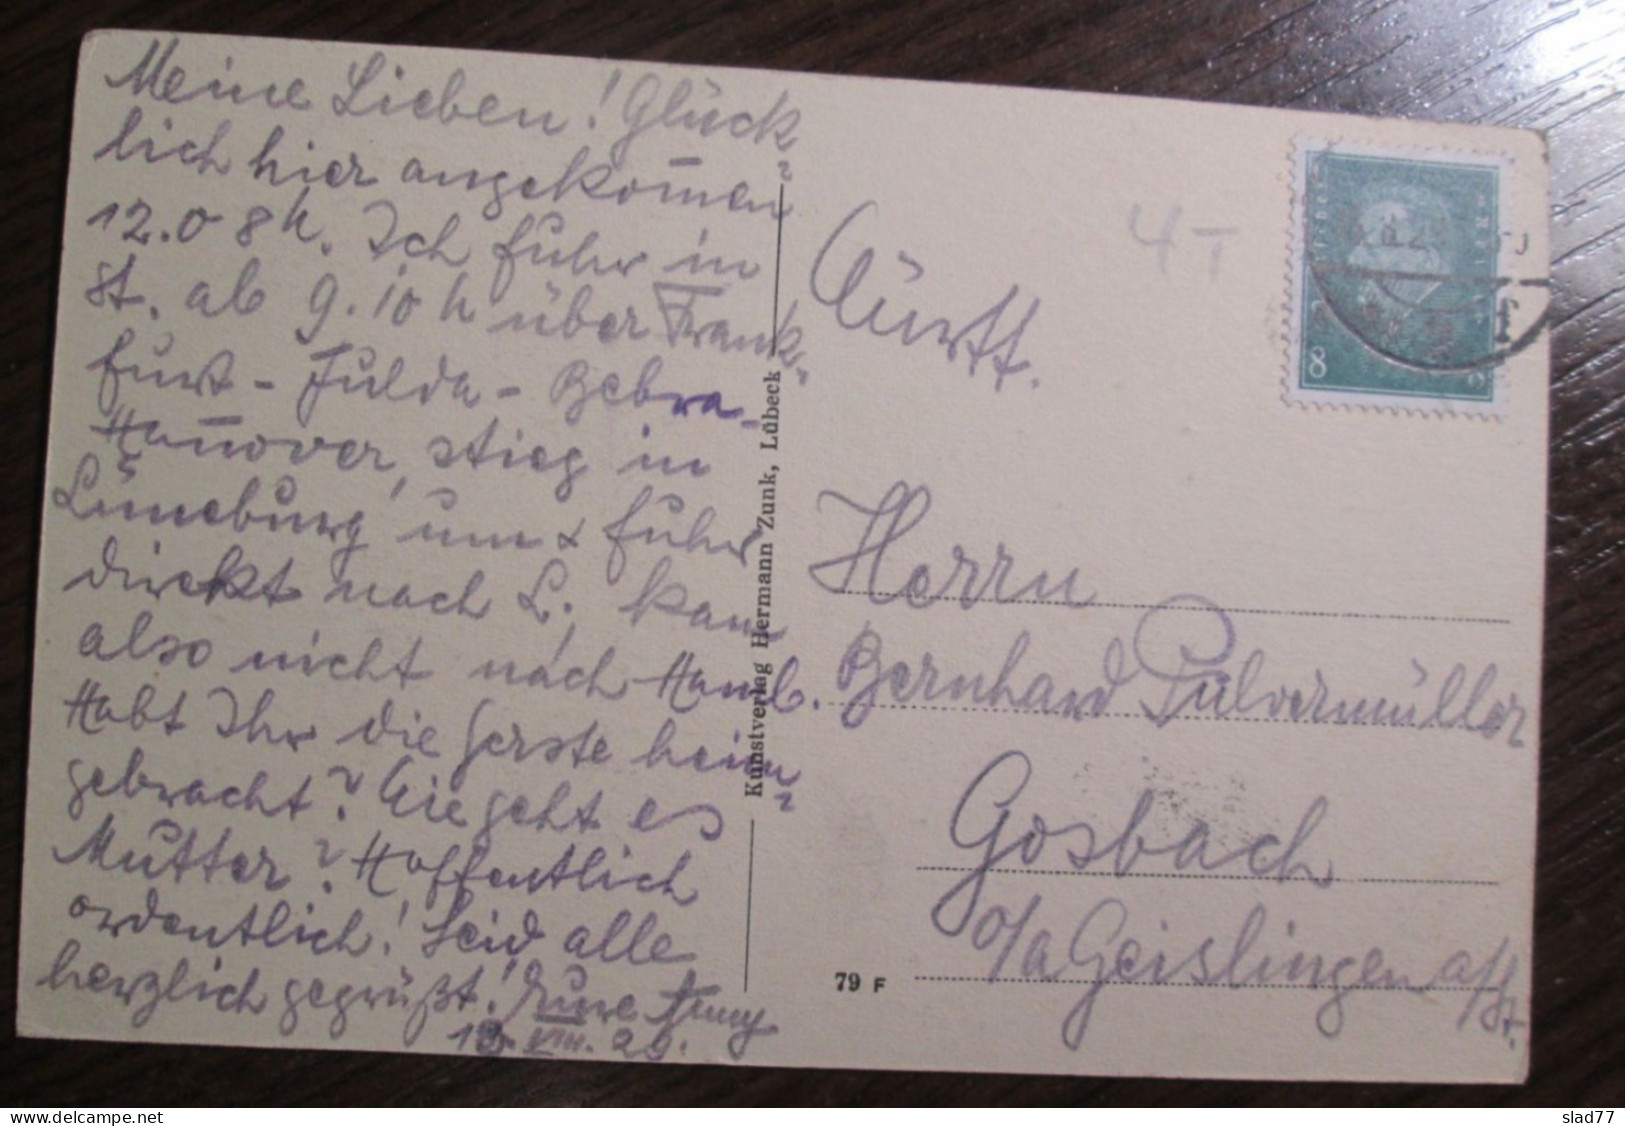 Meine Lieben! Glück
lich hier angekom̄en
12.08h. Ich fuhr in
St. ab 9.10h über Frank-
furt - Fulda - Bebra -
Han̄over, stieg in
Lüneburg um & fuhr
direkt nach L., kam
also nicht nach Hamb.
Habt Ihr die Gerste heim
gebracht? Wie geht es
Mutter? Hoffentlich
ordentlich! Seid alle
herzlich gegrüßt! Eure
VIII. 29.
Kunstverlag Hermann Zunk, Lübeck
4 T
Württ.
8
Herrn
Bernhard Pulvermüller
Gosbach
o/a Geislingen a/St.
79 F
slad77